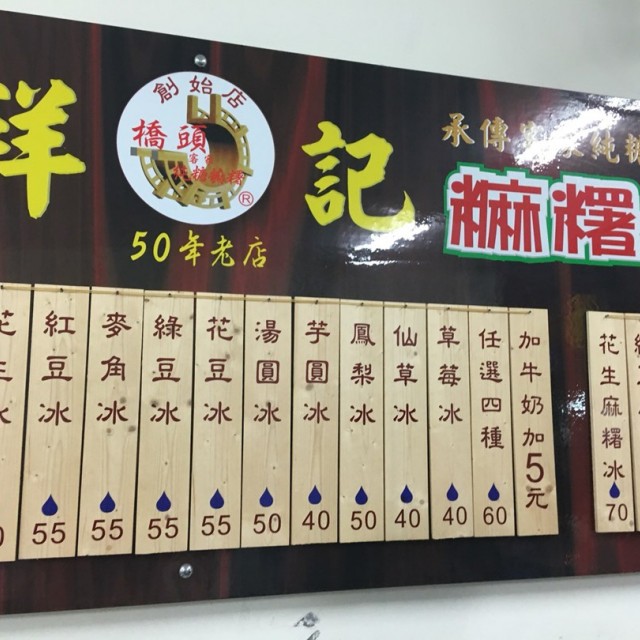 祥記
創始店
橋頭
客家
®
50年老店
承傳
純糖
麻糬
花生冰
紅豆冰 55
麥角冰 55
綠豆冰 55
花豆冰 55
湯圓冰 50
芋圓冰 40
鳳梨冰 50
仙草冰 40
草莓冰 40
任選四種 60
加牛奶加5元
花生麻糬冰 70